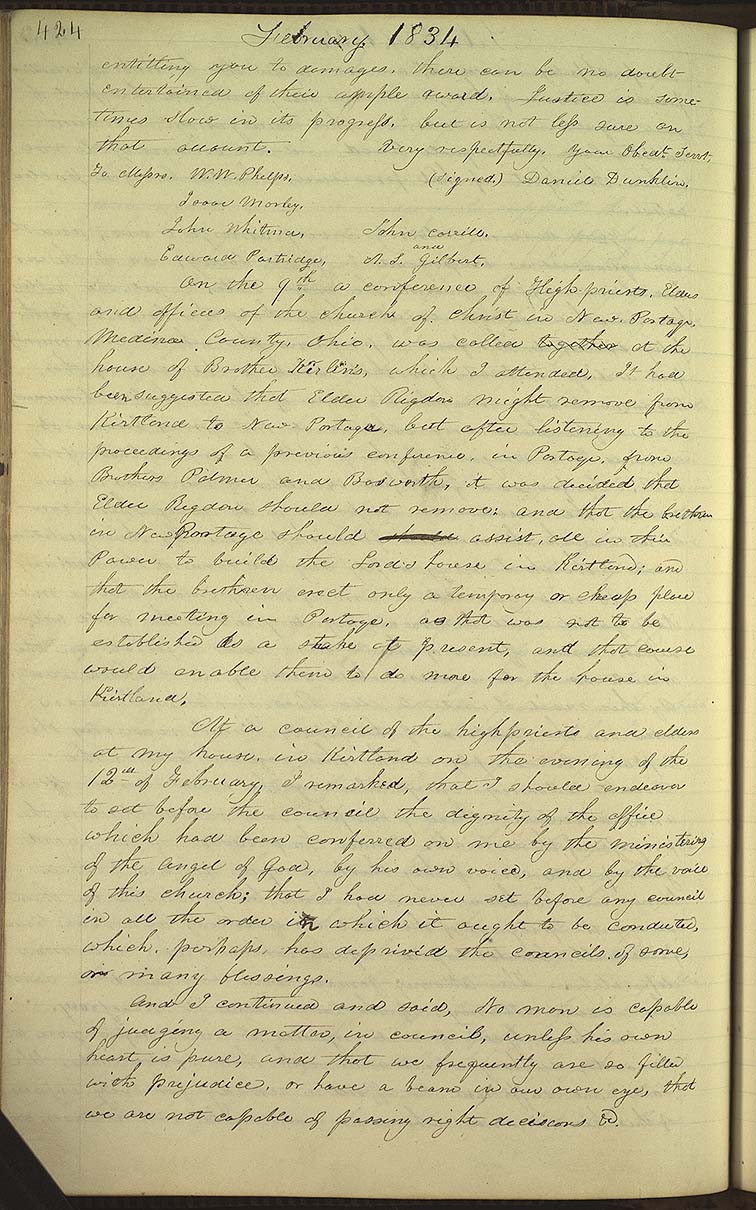 424
February 1834
entitling you to damages. there can be no doubt
entertained of their ample award. Justice is some-
times slow in its progress, but is not less sure on
that account. Very respectfully, your Obedt. Servt,
To Messrs. W. W. Phelps, (signed.) Daniel Dunklin.
Isaac Morley,
John Whitmer, John Corrill,
and
Edward Partridge, A. S. Gilbert,
On the 9th a conference of High-priests, Elders
and officers of the church of Christ in New Portage,
Medina County, Ohio, was called together at the
house of Brother Kirlins, which I attended, It had
been suggested that Elder Rigdon might remove from
Kirtland to New Portage, but after listening to the
proceedings of a previous conference, in Portage, from
Brothers Palmer and Bosworth, it was decided that
Elder Regdon should not remove; and that the brethren
in New Portage should should assist, all in their
Power to build the Lord's house in Kirtland; and
that the brethren erect only a temporay or cheap place
for meeting in Portage, as that was not to be
established as a stake at present, and that course
would enable them to do more for the house in
Kirtland,
At a council of the high priests and elders
at my house, in Kirtland on the evening of the
12th of February, I remarked, that I should endeavor
to set before the council the dignity of the office
which had been conferred on me by the ministering
of the angel of God, by his own voice, and by the voice
of this church; that I had never set before any council
in all the order in which it ought to be conducted,
which, perhaps, has deprivid the councils of some,
or many blessings.
And I continued and said, No man is capable
of judging a matter, in council, unless his own
heart is pure, and that we frequently are so filled
with prejudice, or have a beam in our own eye, that
we are not capable of passing right decisions &c.